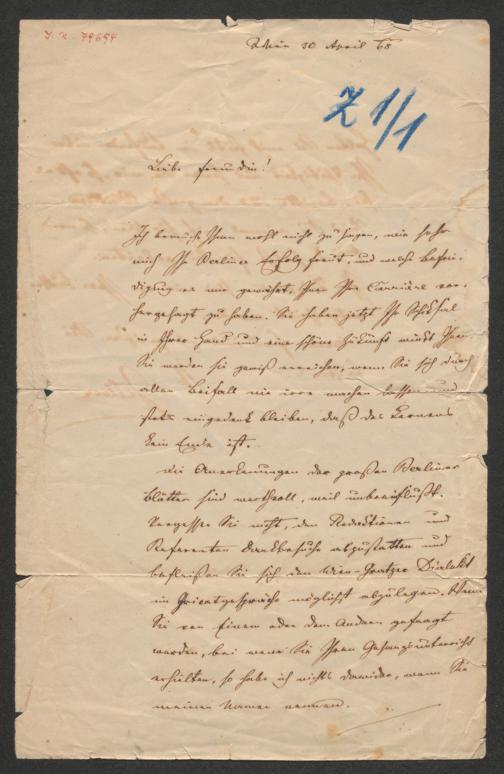 J. N. 79694
Wien 30 April 68
Z 1/1
Liebe Freundin!
Ich brauche Ihnen wohl nicht zu sagen, wie sehr
mich Ihr Berliner Erfolg freut, und welche Befrie-
digung es mir gewährt, Ihnen Ihre Carrière vor-
hergesagt zu haben. Sie haben jetzt Ihr Schicksal
in Ihrer Hand und eine schöne Zukunft winkt Ihnen.
Sie werden sie gewiß erreichen, wenn Sie sich durch
allen Beifall nie irre machen lassen und
stets eingedenk bleiben, daß des Lernens
kein Ende ist.
Die Anerkennungen der großen Berliner
Blätter sind werthvoll, weil unbeeinflußt.
Vergessen Sie nicht, den Redactionen und
Referenten Dankbesuche abzustatten und
befleißen Sie sich den Wien-Gratzer Dialekt
im Privatgespräche möglichst abzulegen. Wenn
Sie von Einem oder dem Andern gefragt
werden, bei wem Sie Ihren Gesangsunterricht
erhielten, so habe ich nichts dawider, wenn Sie
meinen Namen nennen.